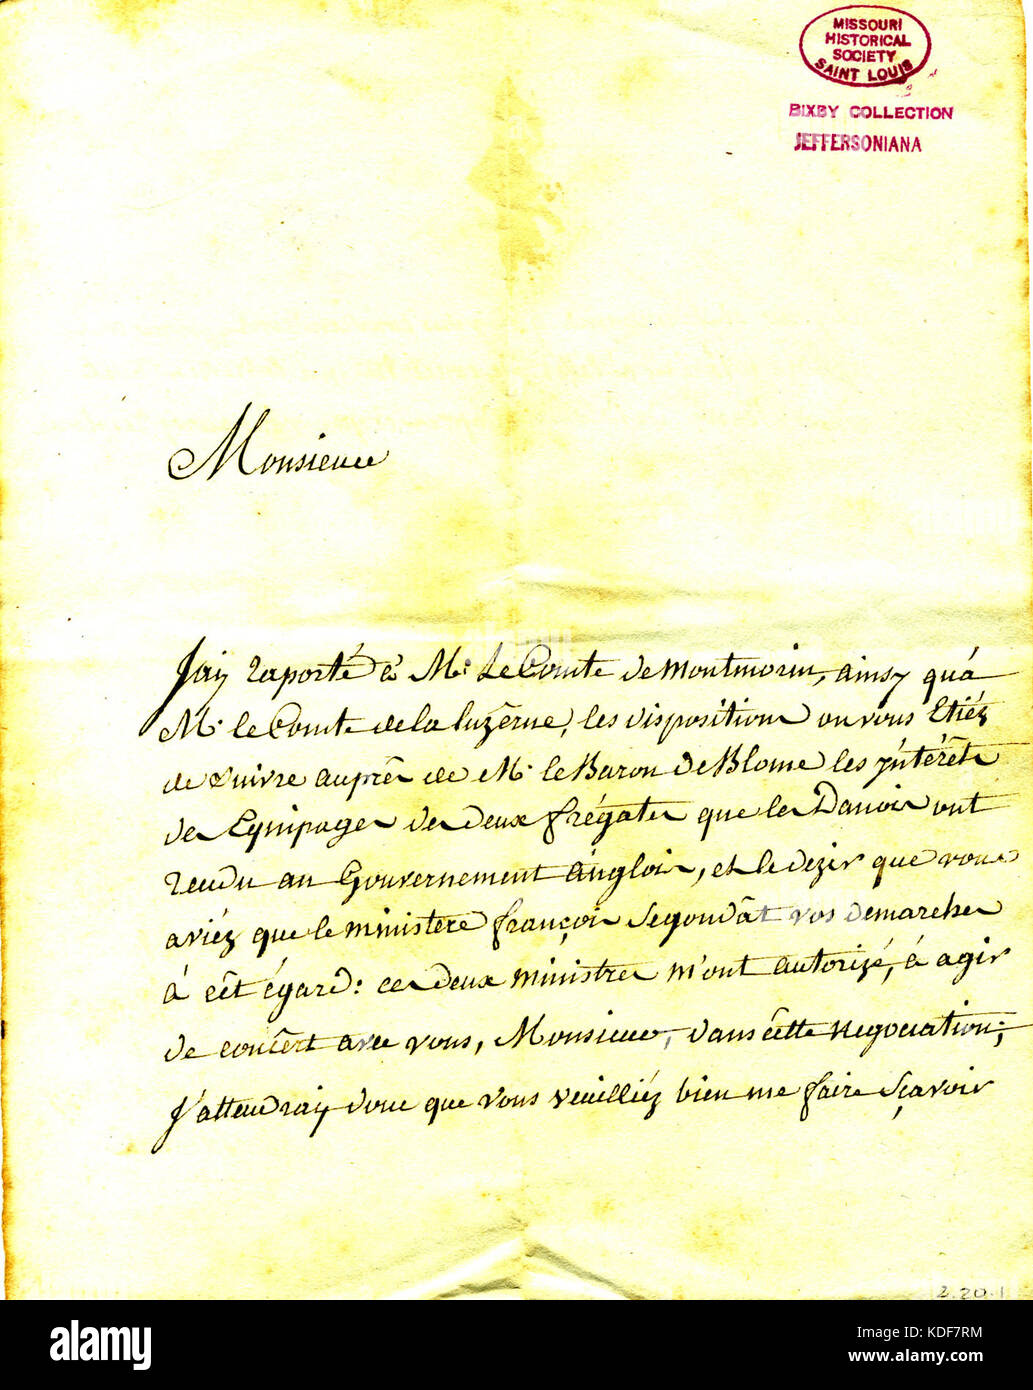 MISSOURI
HISTORICAL
SOCIETY
SAINT LOUIS
BIXBY COLLECTION
JEFFERSONIANA
Monsieur
J'ay raporté à M. Le Comte de Montmorin, ainsy qu'à
M. le Comte de la luzèrne, les dispositions ou vous Etiéz
de suivre auprês de M. le Baron de Blome les yntérêts
des Equipages des deux frégates que les Danois ont
rendu au Gouvernement Anglois, et le dezir que vous
aviéz que le ministère françois segondât vos demarches
à cêt égard: ces deux ministres m'ont autorizé, à agir
de concêrt avec vous, Monsieur, dans cêtte negociation;
j'attendray donc que vous veuilliéz bien me faire sçavoir
2.20.1
alamy
Image ID: KDF7RM
www.alamy.com